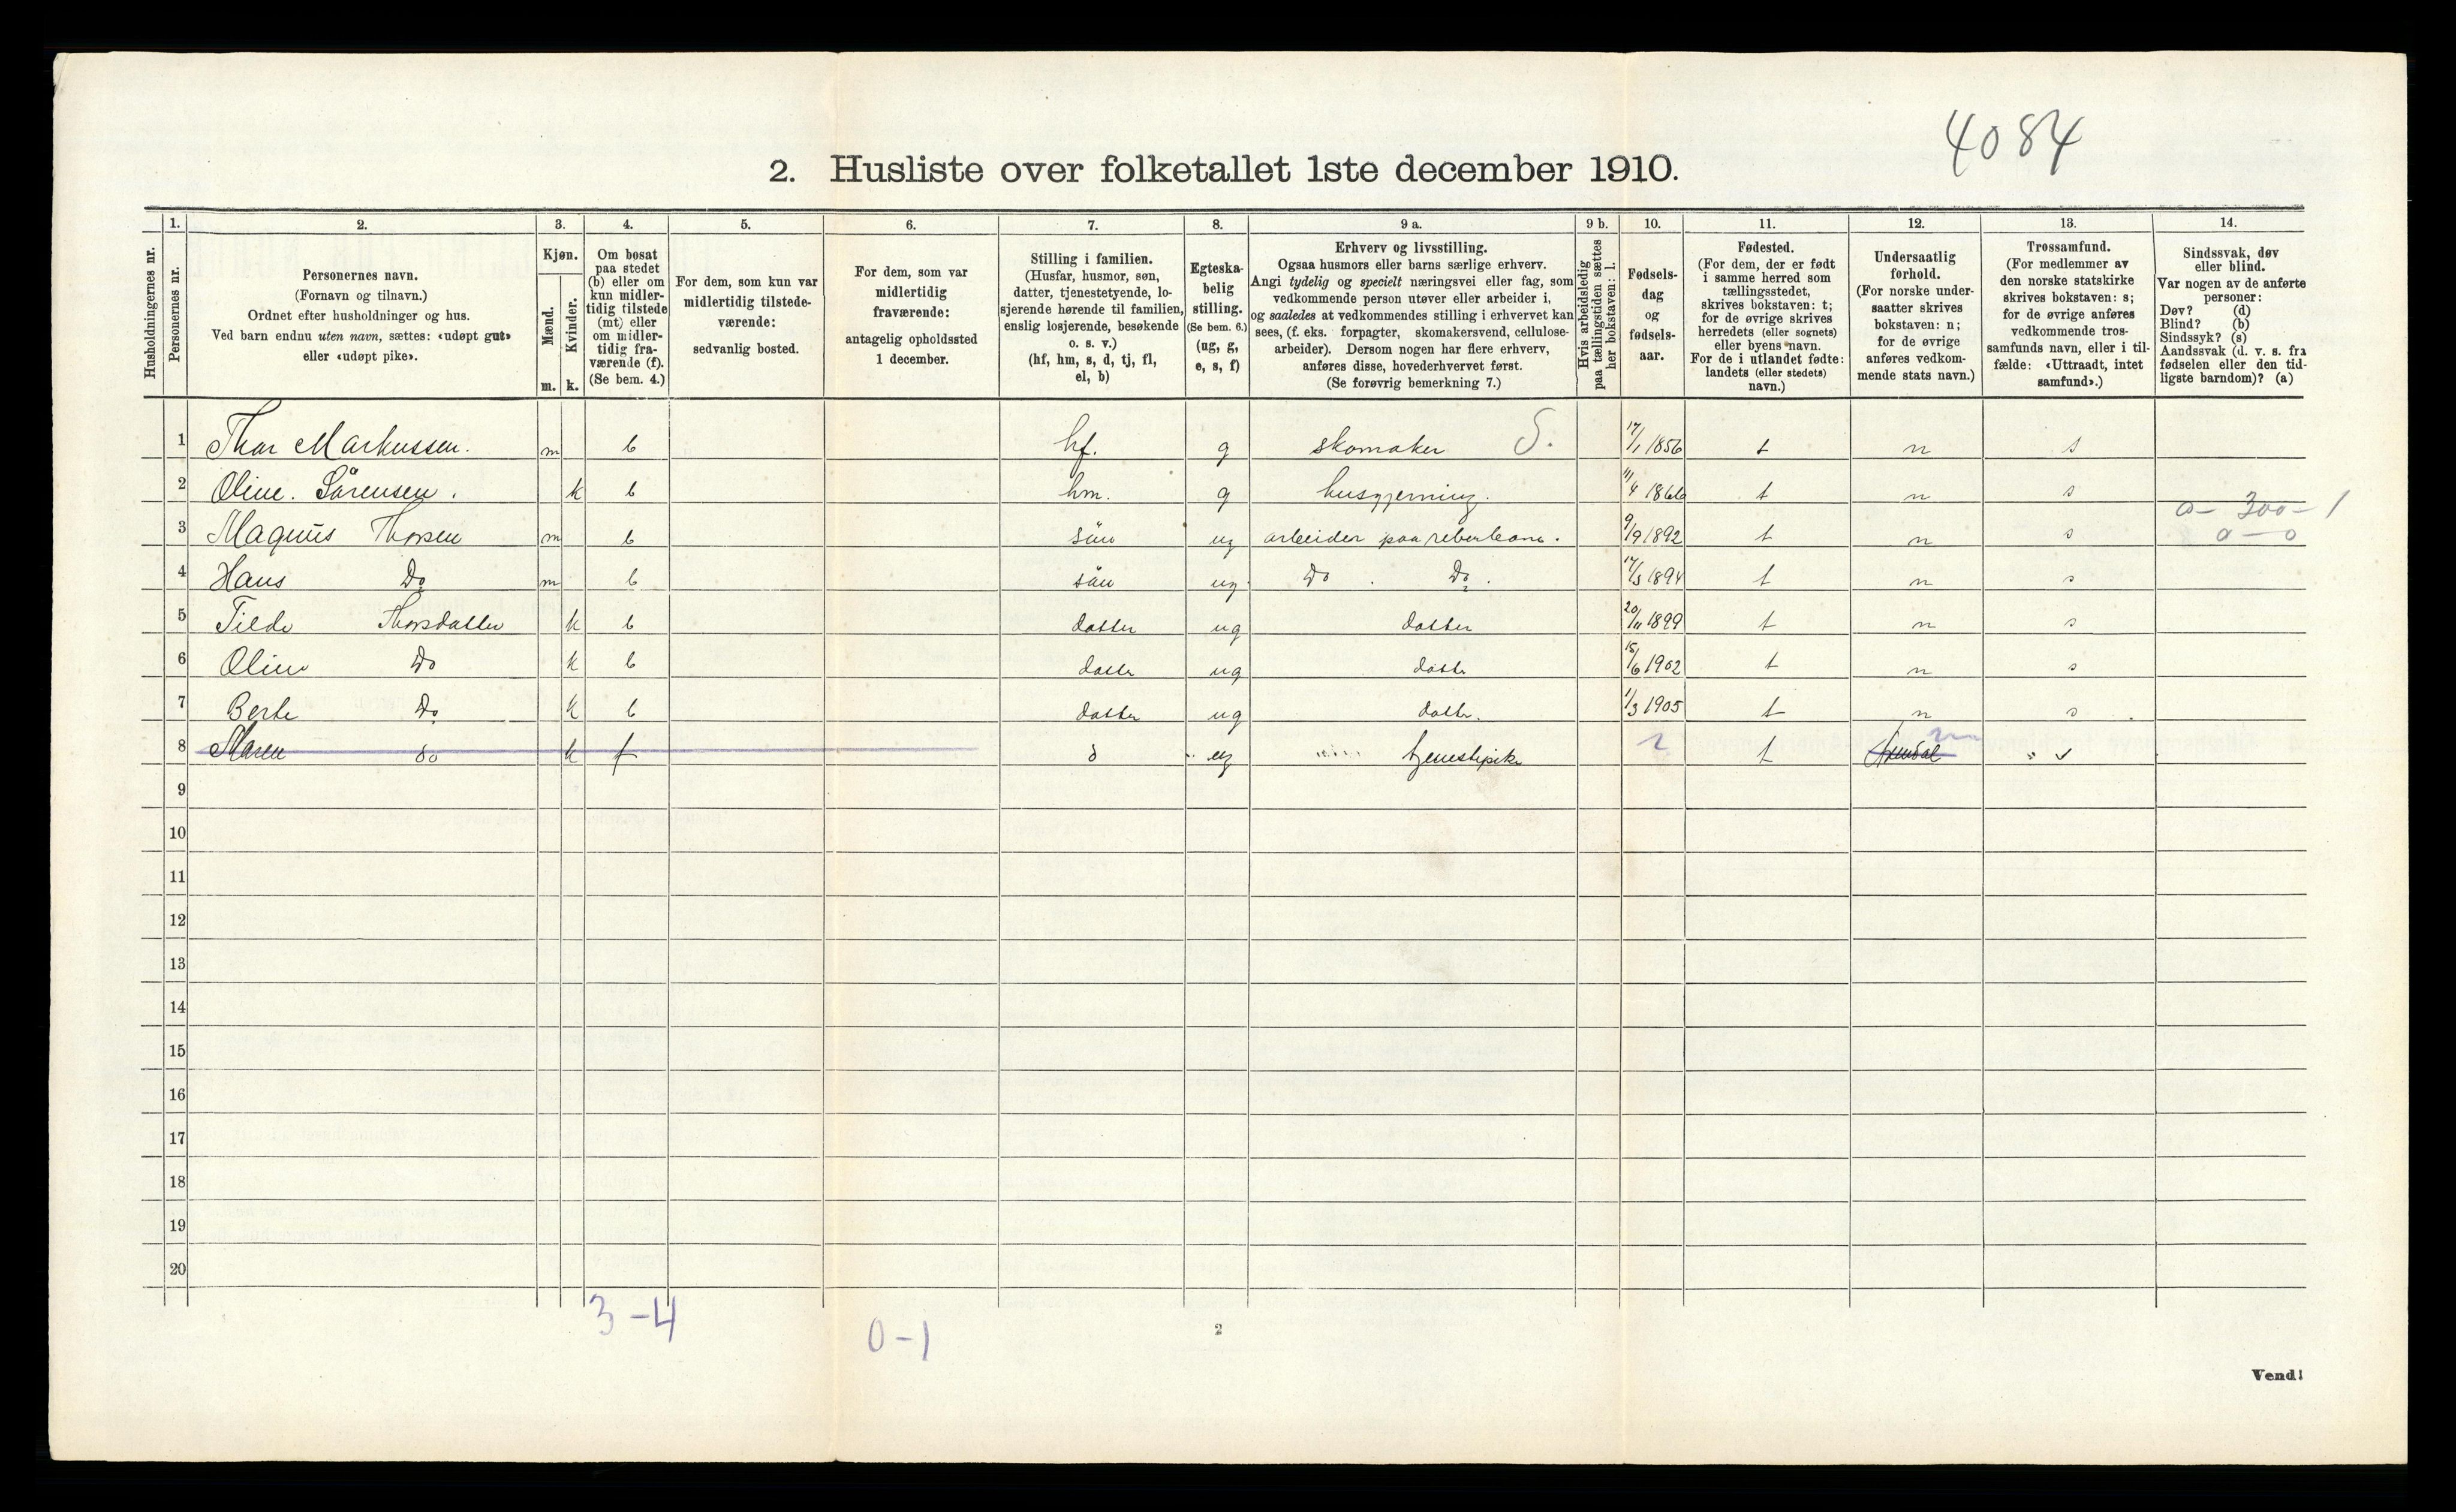 4084
2. Husliste over folketallet 1ste december 1910.
1. 2. 3. 4. 5. 6. 7. 8. 9 a. 9 b. 10. 11. 12. 13. 14.
Husholdningernes nr.
Personernes nr.
Personernes navn.
(Fornavn og tilnavn.)
Ordnet efter husholdninger og hus.
Ved barn endnu uten navn, sættes: «udøpt gut»
eller «udøpt pike».
Kjøn.
Mænd.
Kvinder.
m. k.
Om bosat
paa stedet
(b) eller om
kun midler-
tidig tilstede
(mt) eller
om midler-
tidig fra-
værende (f).
(Se bem. 4.)
For dem, som kun var
midlertidig tilstede-
værende:
sedvanlig bosted.
For dem, som var
midlertidig
fraværende:
antagelig opholdssted
1 december.
Stilling i familien.
(Husfar, husmor, søn,
datter, tjenestetyende, lo-
sjerende hørende til familien,
enslig losjerende, besøkende
o. s. v.)
(hf, hm, s, d, tj, fl,
el, b)
Egteska-
belig
stilling.
(Se bem. 6.)
(ug, g,
e, s, f)
Erhverv og livsstilling.
Ogsaa husmors eller barns særlige erhverv.
Angi tydelig og specielt næringsvei eller fag, som
vedkommende person utøver eller arbeider i,
og saaledes at vedkommendes stilling i erhvervet kan
sees, (f. eks. forpagter, skomakersvend, cellulose-
arbeider). Dersom nogen har flere erhverv,
anføres disse, hovederhvervet først.
(Se forøvrig bemerkning 7.)
Hvis arbeidsledig
paa tællingstiden sættes
her bokstaven: l.
Fødsels-
dag
og
fødsels-
aar.
Fødested.
(For dem, der er født
i samme herred som
tællingsstedet,
skrives bokstaven: t;
for de øvrige skrives
herredets (eller sognets)
eller byens navn.
For de i utlandet fødte:
landets (eller stedets)
navn.)
Undersaatlig
forhold.
(For norske under-
saatter skrives
bokstaven: n;
for de øvrige
anføres vedkom-
mende stats navn.)
Trossamfund.
(For medlemmer av
den norske statskirke
skrives bokstaven: s;
for de øvrige anføres
vedkommende tros-
samfunds navn, eller i til-
fælde: «Uttraadt, intet
samfund».)
Sindssvak, døv
eller blind.
Var nogen av de anførte
personer:
Døv? (d)
Blind? (b)
Sindssyk? (s)
Aandssvak (d. v. s. fra
fødselen eller den tid-
ligste barndom)? (a)
1 Thor Markussen. m b hf. g skomaker S. 17/1 1856 t n s
2 Oline. Sörensen. k b hm. g husgjerning. 11/4 1866 t n s
0 - 300 - 1
3 Magnus Thorsen m b sön ug arbeider paa reberbane. 9/9 1892 t n s 0 - 0
4 Hans Do m b sön ug Do Do. 17/3 1894 t n s
5 Tilde Thorsdatter k b datter ug datter 20/11 1899 t n s
6 Oline Do k b datter ug datter 15/6 1902 t n s
7 Berte Do k b datter ug datter. 1/3 1905 t n s
8 Maren do k f d ug tjenestepike t Arendal n s
9
10
11
12
13
14
15
16
17
18
19
20
3 - 4
0 - 1
2
Vend!